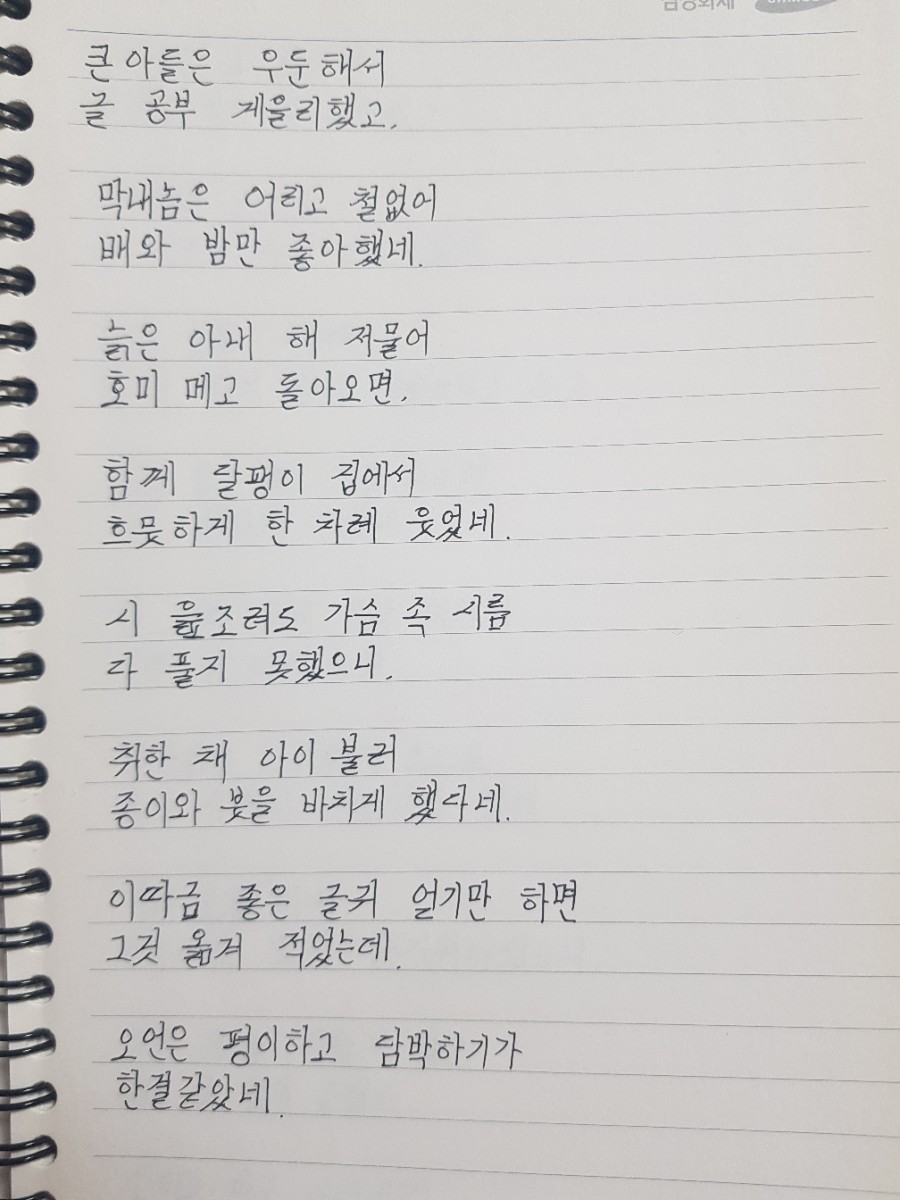 삼성화재
큰 아들은 우둔해서
글 공부 게을리했고.
막내놈은 어리고 철없어
배와 밤만 좋아했네.
늙은 아내 해 저물어
호미 메고 돌아오면.
함께 달팽이 집에서
흐뭇하게 한 차례 웃었네.
시 읊조려도 가슴 속 시름
다 풀지 못했으니.
취한 채 아이 불러
종이와 붓을 바치게 했다네.
이따금 좋은 글귀 얻기만 하면
그것 옮겨 적었는데.
오언은 평이하고 담박하기가
한결같았네.